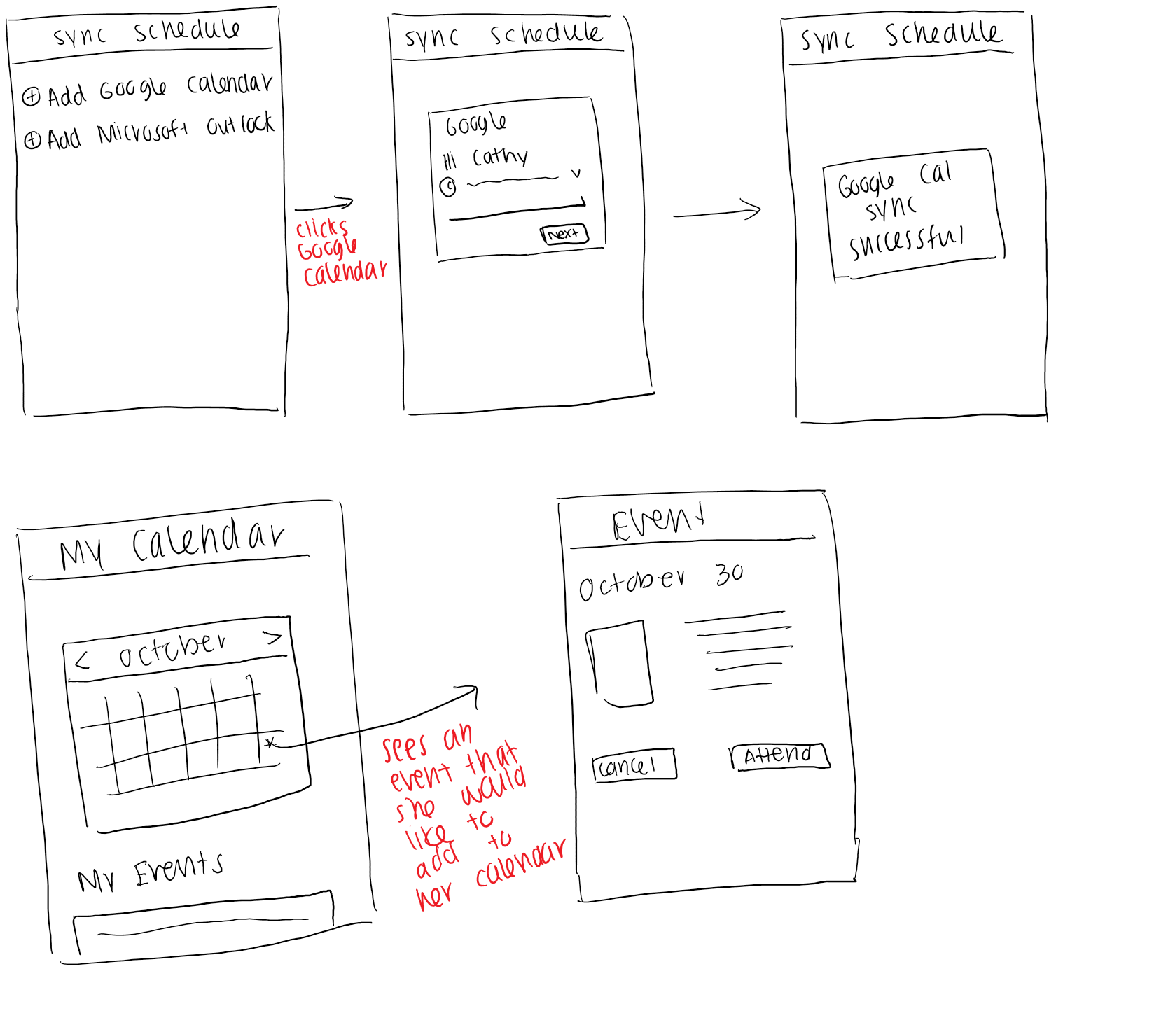 sync schedule
Add Google Calendar
Add Microsoft Outlook
clicks
Google
Calendar
sync schedule
Google
Hi Cathy
C
Next
sync schedule
Google Cal
sync
successful
My Calendar
< October >
My Events
sees an
event that
she would
like to
add to
her calendar
Event
October 30
Cancel
Attend